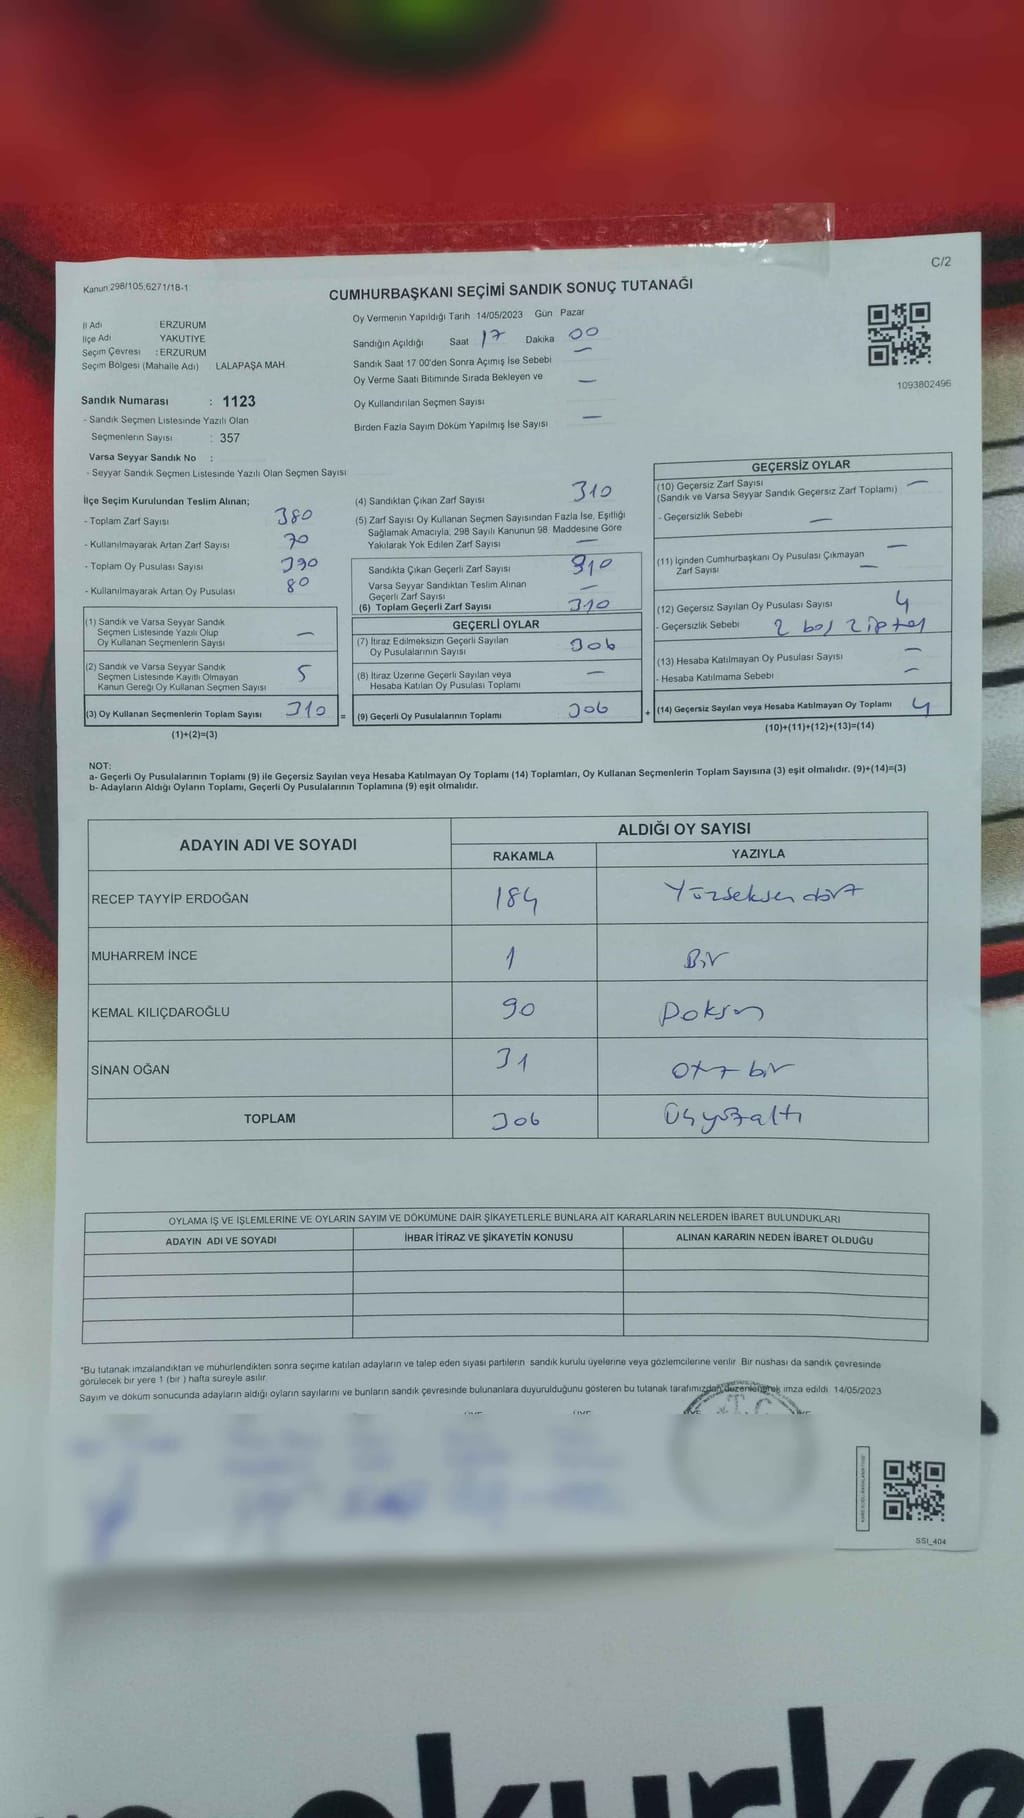 C/2
Kanun 298/105,6271/18-1
CUMHURBAŞKANI SEÇİMİ SANDIK SONUÇ TUTANAĞI
1093802496
İl Adı ERZURUM
İlçe Adı YAKUTİYE
Seçim Çevresi : ERZURUM
Seçim Bölgesi (Mahalle Adı) LALAPAŞA MAH.
Sandık Numarası : 1123
- Sandık Seçmen Listesinde Yazılı Olan
Seçmenlerin Sayısı : 357
Varsa Seyyar Sandık No :
- Seyyar Sandık Seçmen Listesinde Yazılı Olan Seçmen Sayısı
Oy Vermenin Yapıldığı Tarih 14/05/2023 Gün Pazar
Sandığın Açıldığı Saat 17 Dakika 00
Sandık Saat 17 00'den Sonra Açımış İse Sebebi —
Oy Verme Saati Bitiminde Sırada Bekleyen ve
Oy Kullandırılan Seçmen Sayısı —
Birden Fazla Sayım Döküm Yapılmış İse Sayısı —
İlçe Seçim Kurulundan Teslim Alınan;
- Toplam Zarf Sayısı 380
- Kullanılmayarak Artan Zarf Sayısı 70
- Toplam Oy Pusulası Sayısı 390
- Kullanılmayarak Artan Oy Pusulası 80
(1) Sandık ve Varsa Seyyar Sandık
Seçmen Listesinde Yazılı Olup
Oy Kullanan Seçmenlerin Sayısı —
(2) Sandık ve Varsa Seyyar Sandık
Seçmen Listesinde Kayıtlı Olmayan
Kanun Gereği Oy Kullanan Seçmen Sayısı 5
(3) Oy Kullanan Seçmenlerin Toplam Sayısı 310 =
(1)+(2)=(3)
(4) Sandıktan Çıkan Zarf Sayısı 310
(5) Zarf Sayısı Oy Kullanan Seçmen Sayısından Fazla İse, Eşitliği
Sağlamak Amacıyla, 298 Sayılı Kanunun 98. Maddesine Göre
Yakılarak Yok Edilen Zarf Sayısı —
Sandıkta Çıkan Geçerli Zarf Sayısı 310
Varsa Seyyar Sandıktan Teslim Alınan
Geçerli Zarf Sayısı —
(6) Toplam Geçerli Zarf Sayısı 310
GEÇERLİ OYLAR
(7) İtiraz Edilmeksizin Geçerli Sayılan
Oy Pusulalarının Sayısı 306
(8) İtiraz Üzerine Geçerli Sayılan veya
Hesaba Katılan Oy Pusulası Toplamı —
(9) Geçerli Oy Pusulalarının Toplamı 306 +
GEÇERSİZ OYLAR
(10) Geçersiz Zarf Sayısı —
(Sandık ve Varsa Seyyar Sandık Geçersiz Zarf Toplamı)
- Geçersizlik Sebebi —
(11) İçinden Cumhurbaşkanı Oy Pusulası Çıkmayan —
Zarf Sayısı —
(12) Geçersiz Sayılan Oy Pusulası Sayısı 4
- Geçersizlik Sebebi 2 boş 2 iptal
(13) Hesaba Katılmayan Oy Pusulası Sayısı —
- Hesaba Katılmama Sebebi —
(14) Geçersiz Sayılan veya Hesaba Katılmayan Oy Toplamı 4
(10)+(11)+(12)+(13)=(14)
NOT:
a- Geçerli Oy Pusulalarının Toplamı (9) ile Geçersiz Sayılan veya Hesaba Katılmayan Oy Toplamı (14) Toplamları, Oy Kullanan Seçmenlerin Toplam Sayısına (3) eşit olmalıdır. (9)+(14)=(3)
b- Adayların Aldığı Oyların Toplamı, Geçerli Oy Pusulalarının Toplamına (9) eşit olmalıdır.
ADAYIN ADI VE SOYADI ALDIĞI OY SAYISI
RAKAMLA YAZIYLA
RECEP TAYYİP ERDOĞAN 184 Yüzseksen dört
MUHARREM İNCE 1 Bir
KEMAL KILIÇDAROĞLU 90 Doksan
SİNAN OĞAN 31 Otuz bir
TOPLAM 306 Üçyüzaltı
OYLAMA İŞ VE İŞLEMLERİNE VE OYLARIN SAYIM VE DÖKÜMÜNE DAİR ŞİKAYETLERLE BUNLARA AİT KARARLARIN NELERDEN İBARET BULUNDUKLARI
ADAYIN ADI VE SOYADI İHBAR İTİRAZ VE ŞİKAYETİN KONUSU ALINAN KARARIN NEDEN İBARET OLDUĞU
*Bu tutanak imzalandıktan ve mühürlendikten sonra seçime katılan adayların ve talep eden siyasi partilerin sandık kurulu üyelerine veya gözlemcilerine verilir. Bir nüshası da sandık çevresinde
görülecek bir yere 1 (bir ) hafta süreyle asılır.
Sayım ve döküm sonucunda adayların aldığı oyların sayılarını ve bunların sandık çevresinde bulunanlara duyurulduğunu gösteren bu tutanak tarafımızdan düzenlenerek imza edildi. 14/05/2023
T.C.
SSI_404